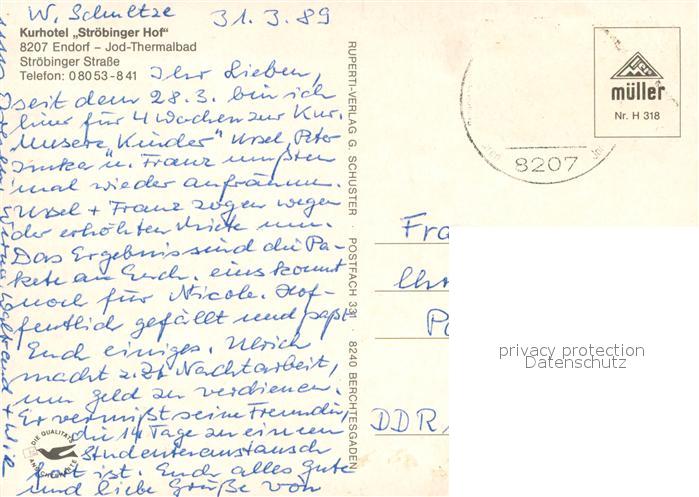 W. Schultze 31.3.89
Kurhotel „Ströbinger Hof"
8207 Endorf – Jod-Thermalbad
Ströbinger Straße
Telefon: 0 80 53 - 8 41
Ihr Lieben,
seit dem 28.3. bin ich
hier für 4 Wochen zur Kur.
Unsere „Kinder" Ursel, Peter
u. Franz mußten
mal wieder aufräumen.
Ursel + Franz zogen wegen
der erhöhten Miete um.
Das Ergebnis sind die Pa-
kete an Euch, eins kommt
noch für Nicole. Hof-
fentlich gefällt und paßt
Euch einiges. Ulrich
macht z.Zt. Nachtarbeit,
um Geld zu verdienen.
Er vermißt seine Freundin,
die 14 Tage zu einem
Studentenaustausch
fort ist. Euch alles Gute
und liebe Grüße von
DIE QUALITÄTS
ANSICHTSKARTE
RUPERTI-VERLAG G. SCHUSTER · POSTFACH 331 · 8240 BERCHTESGADEN
müller
Nr. H 318
8207
Fra
DDR
privacy protection
Datenschutz